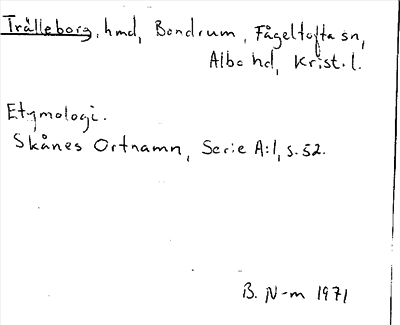 Trålleborg, hmd, Bondrum, Fågeltofta sn,
Albo hd, Krist. l.
Etymologi.
Skånes Ortnamn, Serie A:1, s. 52.
B. N-m 1971